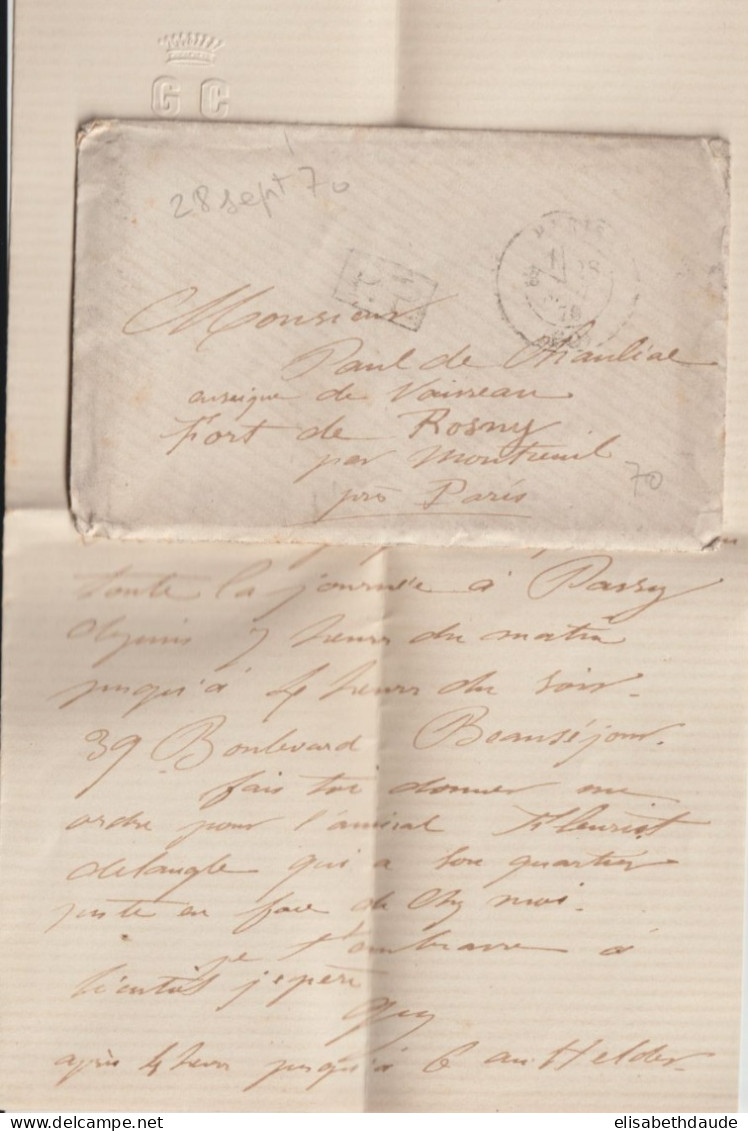 G C
28 sept 70
PARIS
70
Monsieur
Paul de Chauliac
enseigne de Vaisseau
Fort de Rosny
par Montreuil
près Paris
70
toute la journée à Passy
depuis 7 heures du matin
jusqu'à 4 heures du soir.
39 Boulevard Beauséjour.
fais toi donner un
ordre pour l'amiral Fleuriot
delangle qui a son quartier
juste en face de chez moi.
je t'embrasse à
bientôt j'espère
Guy
après 4 heures jusqu'à 6 au Helder.
elisabethdaude